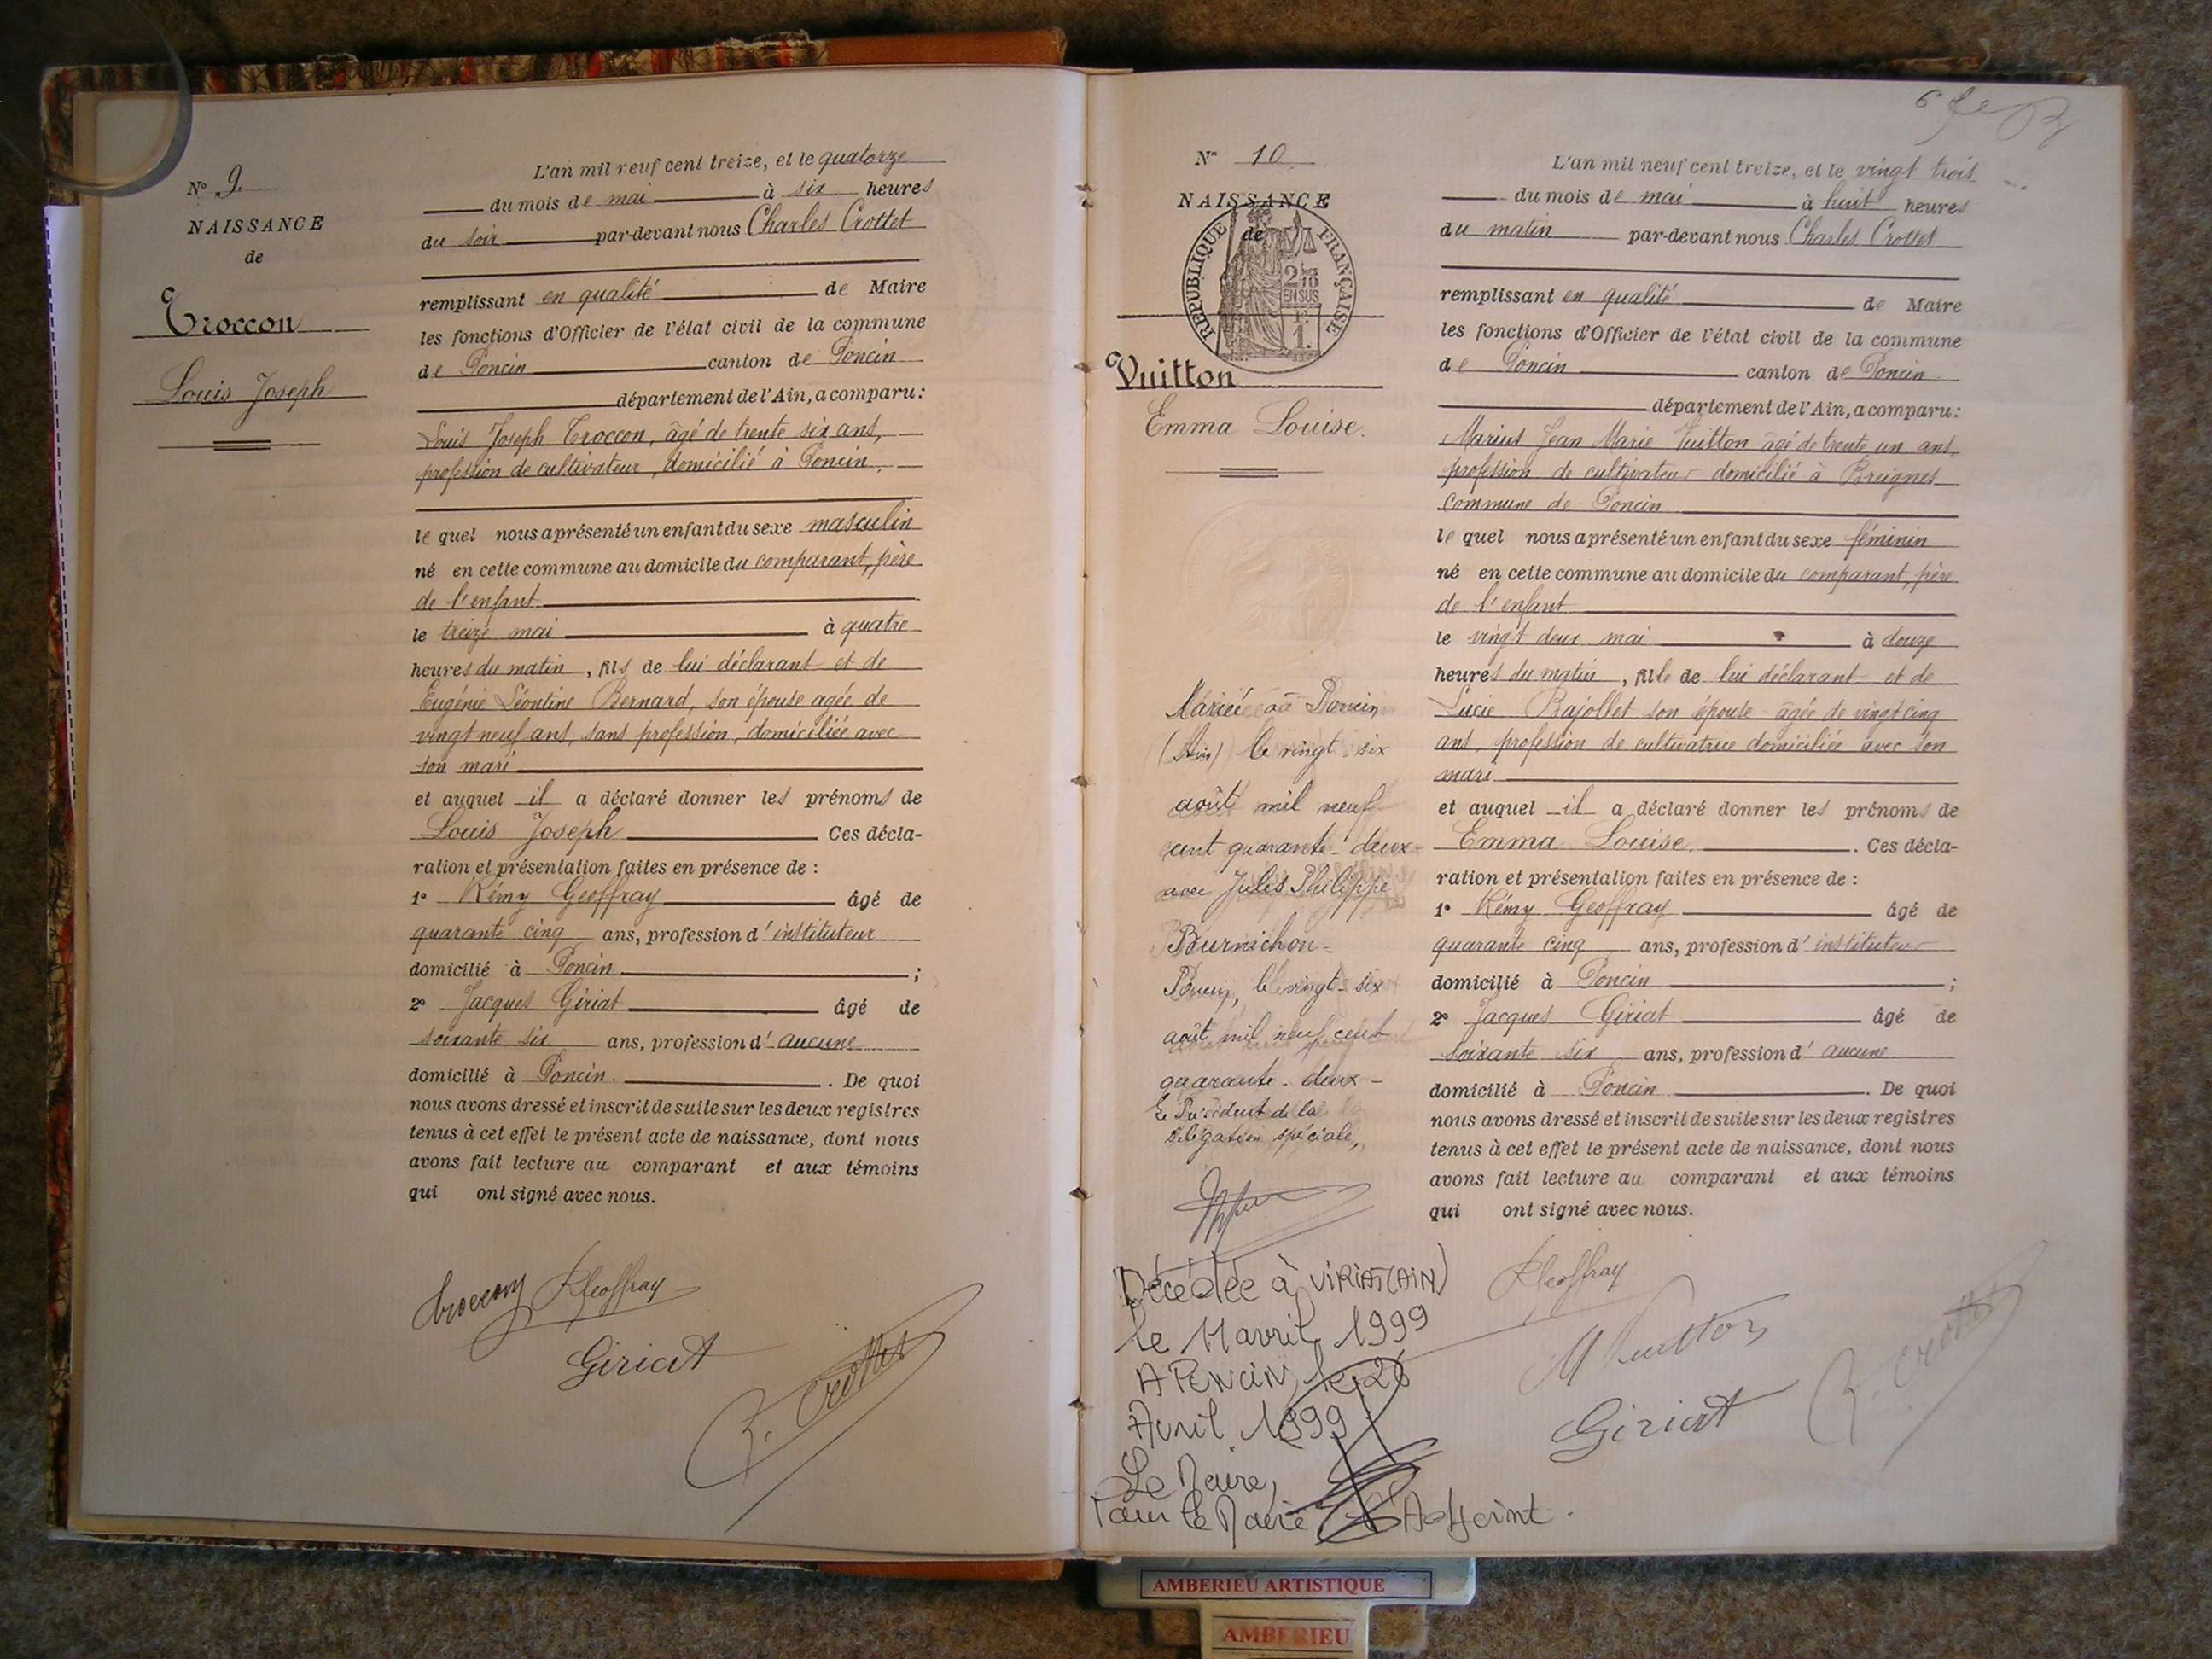 N° 9
NAISSANCE
de
Troccon
Louis Joseph
L'an mil neuf cent treize, et le quatorze
du mois de mai à six heures
du soir par-devant nous Charles Crottet
remplissant en qualité de Maire
les fonctions d'Officier de l'état civil de la commune
de Poncin canton de Poncin
département de l'Ain, a comparu:
Louis Joseph Troccon, âgé de trente six ans,
profession de cultivateur, domicilié à Poncin,
le quel nous a présenté un enfant du sexe masculin
né en cette commune au domicile du comparant, père
de l'enfant
le treize mai à quatre
heures du matin, fils de lui déclarant et de
Eugénie Léontine Bernard, son épouse agée de
vingt neuf ans, sans profession, domiciliée avec
son mari
et auquel il a déclaré donner les prénoms de
Louis Joseph Ces décla-
ration et présentation faites en présence de :
1° Rémy Geoffray âgé de
quarante cinq ans, profession d'instituteur
domicilié à Poncin ;
2° Jacques Giriat âgé de
soixante six ans, profession d'aucune
domicilié à Poncin. . De quoi
nous avons dressé et inscrit de suite sur les deux registres
tenus à cet effet le présent acte de naissance, dont nous
avons fait lecture au comparant et aux témoins
qui ont signé avec nous.
Troccon RGeoffray
Giriat
Crottet
N° 10
NAISSANCE
de
REPUBLIQUE FRANÇAISE
2/10
EN SUS
1.
Vuitton
Emma Louise.
Mariée à Poncin
(Ain) le vingt six
août mil neuf
cent quarante-deux
avec Jules Philippe
Burnichon-
Poncin, le vingt-six
août mil neuf cent
quarante-deux-
Le Président de la
Délégation spéciale,
Décédée à VIRIAT (AIN)
le 11 avril 1999
A PONCIN, le 26
Avril 1999
Le Maire,
Pour le Maire l'Adjoint.
L'an mil neuf cent treize, et le vingt trois
du mois de mai à huit heures
du matin par-devant nous Charles Crottet
remplissant en qualité de Maire
les fonctions d'Officier de l'état civil de la commune
de Poncin canton de Poncin
département de l'Ain, a comparu:
Marius Jean Marie Vuitton âgé de trente un ans,
profession de cultivateur domicilié à Breignes
commune de Poncin
le quel nous a présenté un enfant du sexe féminin
né en cette commune au domicile du comparant, père
de l'enfant
le vingt deux mai à douze
heures du matin, fille de lui déclarant et de
Lucie Bajollet son épouse âgée de vingt cinq
ans, profession de cultivatrice domiciliée avec son
mari
et auquel il a déclaré donner les prénoms de
Emma Louise. . Ces décla-
ration et présentation faites en présence de :
1° Rémy Geoffray âgé de
quarante cinq ans, profession d'instituteur
domicilié à Poncin ;
2° Jacques Giriat âgé de
soixante six ans, profession d'aucune
domicilié à Poncin . De quoi
nous avons dressé et inscrit de suite sur les deux registres
tenus à cet effet le présent acte de naissance, dont nous
avons fait lecture au comparant et aux témoins
qui ont signé avec nous.
RGeoffray
M Vuitton
Giriat
Crottet
AMBERIEU ARTISTIQUE
AMBERIEU